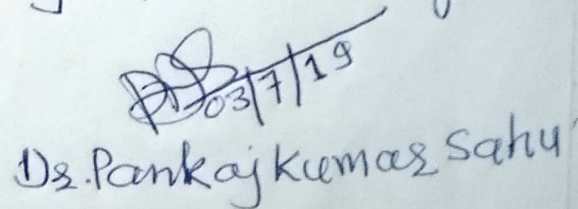 03/7/19
Dr. Pankaj Kumar Sahu